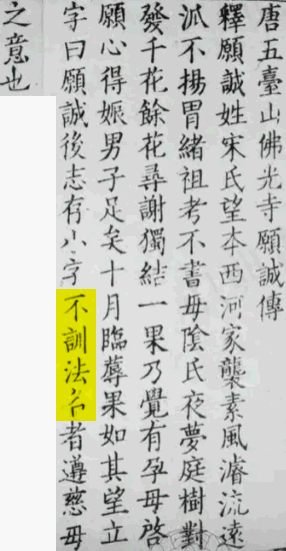 唐五臺山佛光寺願誠傳
釋願誠姓宋氏望本西河家襲素風濬流遠
派不揚胄緒祖考不書母陰氏夜夢庭樹對
發千花餘花尋謝獨結一果乃覺有孕母啓
願心得娠男子足矣十月臨蓐果如其望立
字曰願誠後志存小字不訓法名者遵慈母
之意也